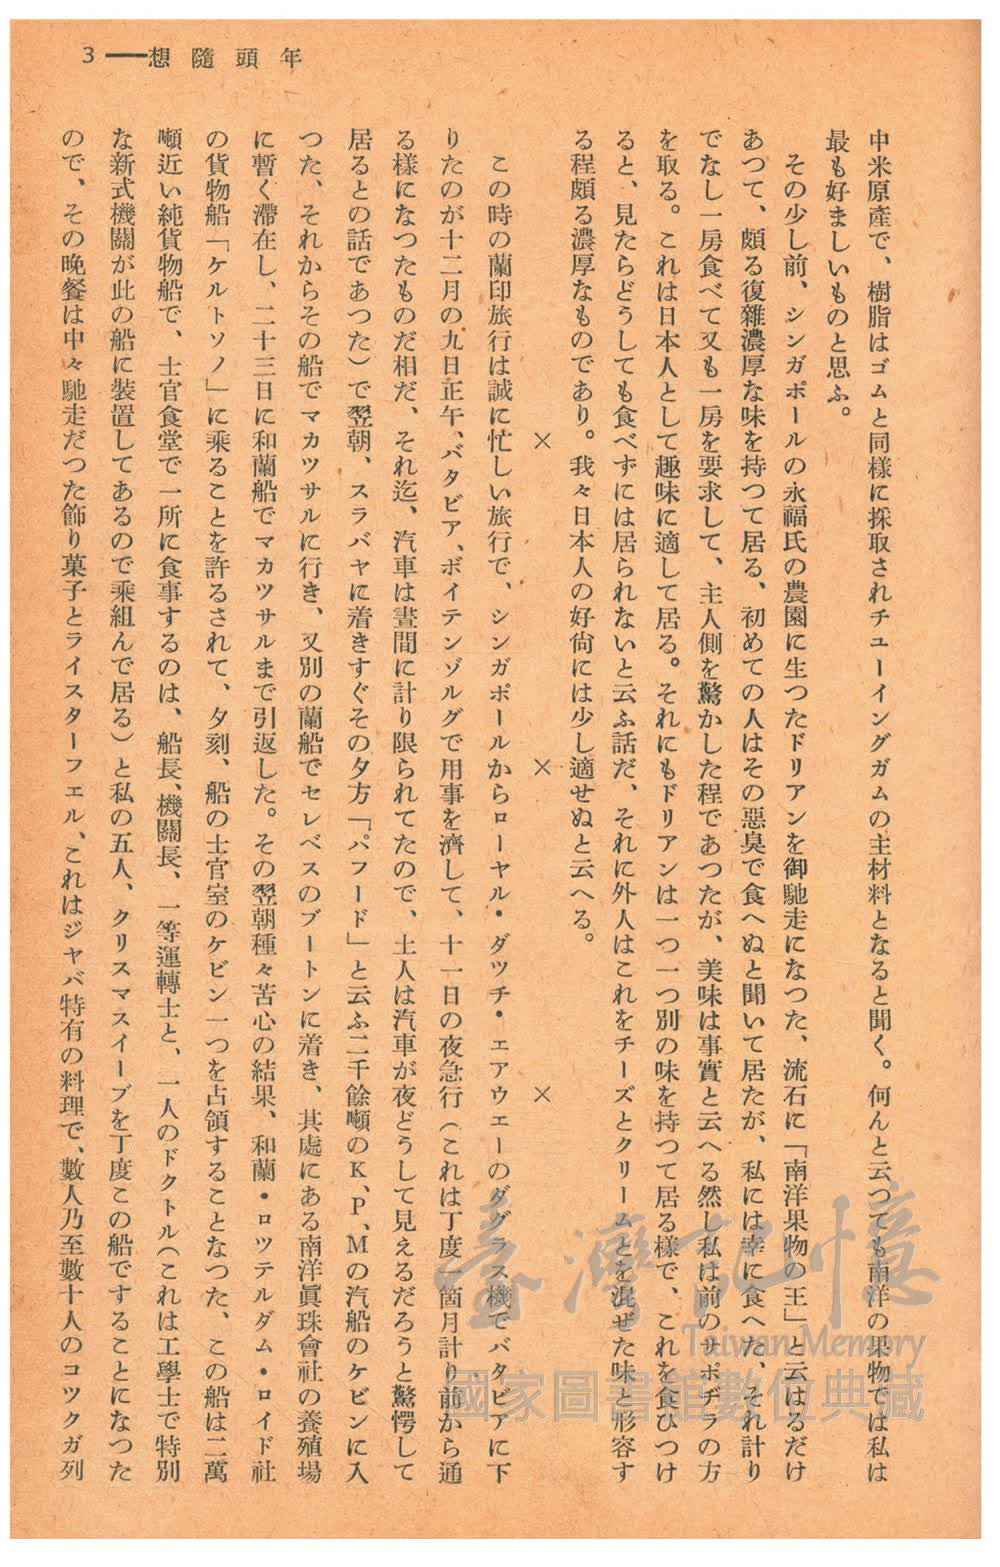 3——想隨頭年
中米原產で、樹脂はゴムと同樣に採取されチユーイングガムの主材料となると聞く。何んと云つても南洋の果物では私は
最も好ましいものと思ふ。
その少し前、シンガポールの永福氏の農園に生つたドリアンを御馳走になつた、流石に「南洋果物の王」と云はるだけ
あつて、頗る復雜濃厚な味を持つて居る、初めての人はその惡臭で食へぬと聞いて居たが、私には幸に食へた、それ計り
でなし一房食べて又も一房を要求して、主人側を驚かした程であつたが、美味は事實と云へる然し私は前のサポヂラの方
を取る。これは日本人として趣味に適して居る。それにもドリアンは一つ一つ別の味を持つて居る樣で、これを食ひつけ
ると、見たらどうしても食べずには居られないと云ふ話だ、それに外人はこれをチーズとクリームとを混ぜた味と形容す
る程頗る濃厚なものであり。我々日本人の好尙には少し適せぬと云へる。
×　×　×
この時の蘭印旅行は誠に忙しい旅行で、シンガポールからローヤル・ダツチ・エアウエーのダグラス機でバタビアに下
りたのが十二月の九日正午、バタビア、ボイテンゾルグで用事を濟して、十一日の夜急行（これは丁度一箇月計り前から通
る樣になつたものだ相だ、それ迄、汽車は晝間に計り限られてたので、土人は汽車が夜どうして見えるだろうと驚愕して
居るとの話であつた）で翌朝、スラバヤに着きすぐその夕方「パフード」と云ふ二千餘噸のK、P、Mの汽船のケビンに入
つた、それからその船でマカツサルに行き、又別の蘭船でセレベスのブートンに着き、其處にある南洋眞珠會社の養殖場
に暫く滯在し、二十三日に和蘭船でマカツサルまで引返した。その翌朝種々苦心の結果、和蘭・ロツテルダム・ロイド社
の貨物船「ケルトソノ」に乘ることを許るされて、夕刻、船の士官室のケビン一つを占領することなつた、この船は二萬
噸近い純貨物船で、士官食堂で一所に食事するのは、船長、機關長、一等運轉士と、一人のドクトル（これは工學士で特別
な新式機關が此の船に裝置してあるので乘組んで居る）と私の五人、クリスマスイーブを丁度この船ですることになつた
ので、その晩餐は中々馳走だつた飾り菓子とライスターフエル、これはジヤバ特有の料理で、數人乃至數十人のコツクガ列
臺灣記憶
Taiwan Memory
國家圖書館數位典藏